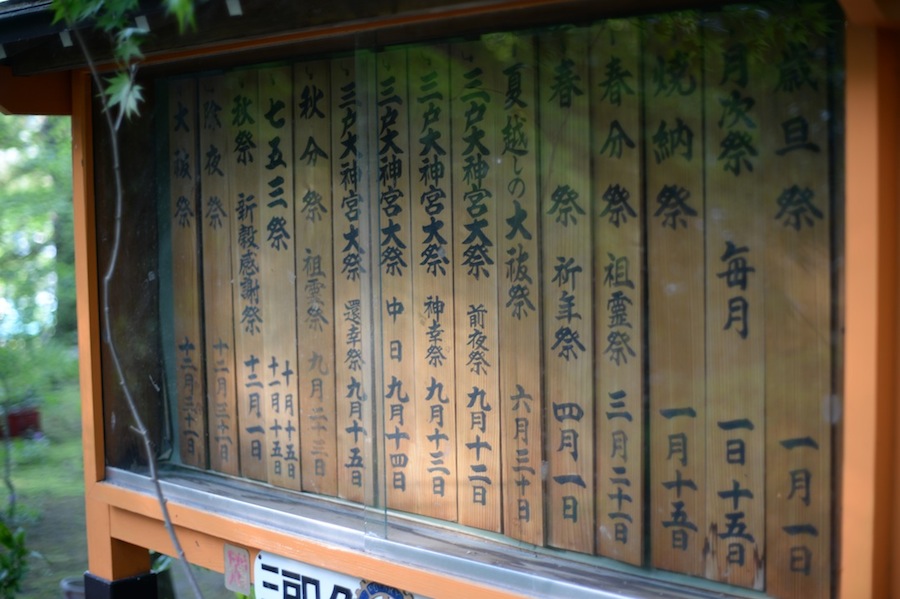 歳旦祭 一月一日
月次祭 毎月 一日 十五日
焼納祭 一月十五日
春分祭 祖霊祭 三月二十一日
春祭 祈年祭 四月一日
夏越しの大祓祭 六月三十日
三戸大神宮大祭 前夜祭 九月十二日
三戸大神宮大祭 神幸祭 九月十三日
三戸大神宮大祭 中日 九月十四日
三戸大神宮大祭 還幸祭 九月十五日
秋分祭 祖霊祭 九月二十三日
七五三祭 十月十五日 十一月十五日
秋祭 新穀感謝祭 十二月一日
除夜祭 十二月三十一日
大祓祭 十二月三十一日